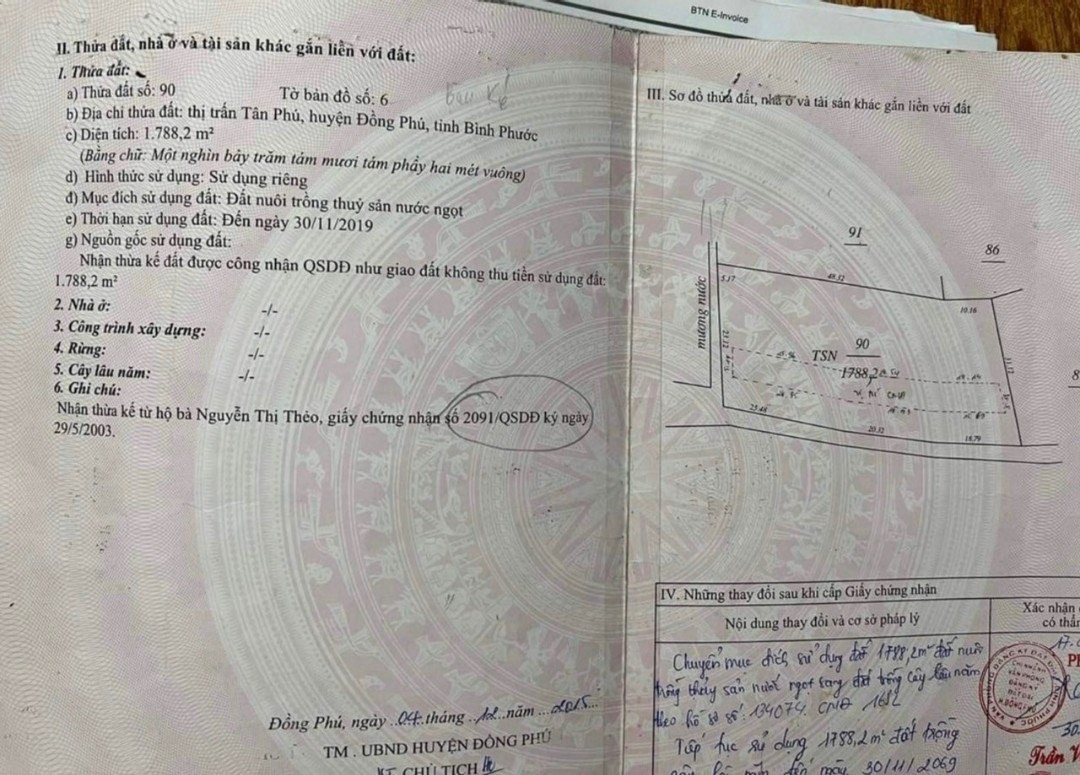 BTN E-Invoice
II. Thửa đất, nhà ở và tài sản khác gắn liền với đất:
1. Thửa đất:
a) Thửa đất số: 90 Tờ bản đồ số: 6
b) Địa chỉ thửa đất: thị trấn Tân Phú, huyện Đồng Phú, tỉnh Bình Phước
c) Diện tích: 1.788,2 m²
(Bằng chữ: Một nghìn bảy trăm tám mươi tám phẩy hai mét vuông)
d) Hình thức sử dụng: Sử dụng riêng
đ) Mục đích sử dụng đất: Đất nuôi trồng thuỷ sản nước ngọt
e) Thời hạn sử dụng đất: Đến ngày 30/11/2019
g) Nguồn gốc sử dụng đất:
Nhận thừa kế đất được công nhận QSDĐ như giao đất không thu tiền sử dụng đất:
1.788,2 m²
2. Nhà ở: -/-
3. Công trình xây dựng: -/-
4. Rừng: -/-
5. Cây lâu năm: -/-
6. Ghi chú:
Nhận thừa kế từ hộ bà Nguyễn Thị Thẻo, giấy chứng nhận số 2091/QSDĐ ký ngày
29/5/2003.
Đồng Phú, ngày 04 tháng 12 năm 2015
TM . UBND HUYỆN ĐỒNG PHÚ
KT CHỦ TỊCH
III. Sơ đồ thửa đất, nhà ở và tài sản khác gắn liền với đất
91
86
mương nước
5.17
48.52
10.16
23.12
TSN 90
1788,2
25.48
20.32
18.79
8
IV. Những thay đổi sau khi cấp Giấy chứng nhận
Nội dung thay đổi và cơ sở pháp lý
Xác nhận
có thẩm
Chuyển mục đích sử dụng đất 1788,2m² đất nuôi
trồng thủy sản nước ngọt sang đất trồng cây lâu năm
theo hồ sơ số 134074. CNQ 1682
Tiếp tục sử dụng 1788,2m² đất trồng
cây lâu năm đến ngày 30/11/2069
CHI NHÁNH
VĂN PHÒNG
ĐĂNG KÝ
ĐẤT ĐAI
H.ĐỒNG PHÚ
Trần V